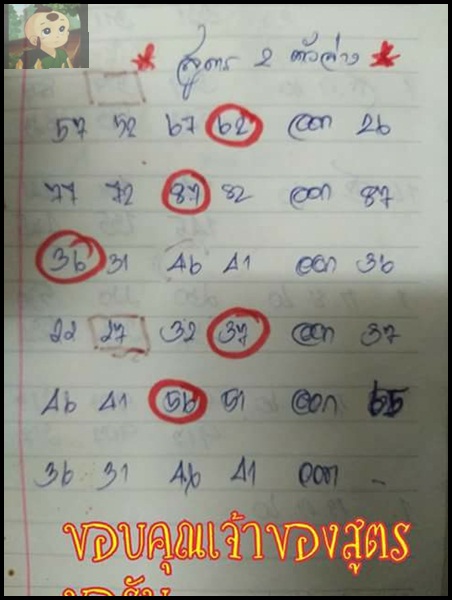 สูตร 2 ตัวล่าง
57 52 67 62 ออก 26
77 72 87 82 ออก 87
36 31 46 41 ออก 36
22 27 32 37 ออก 37
46 41 56 51 ออก 65
36 31 46 41 ออก -
ขอบคุณเจ้าของสูตร